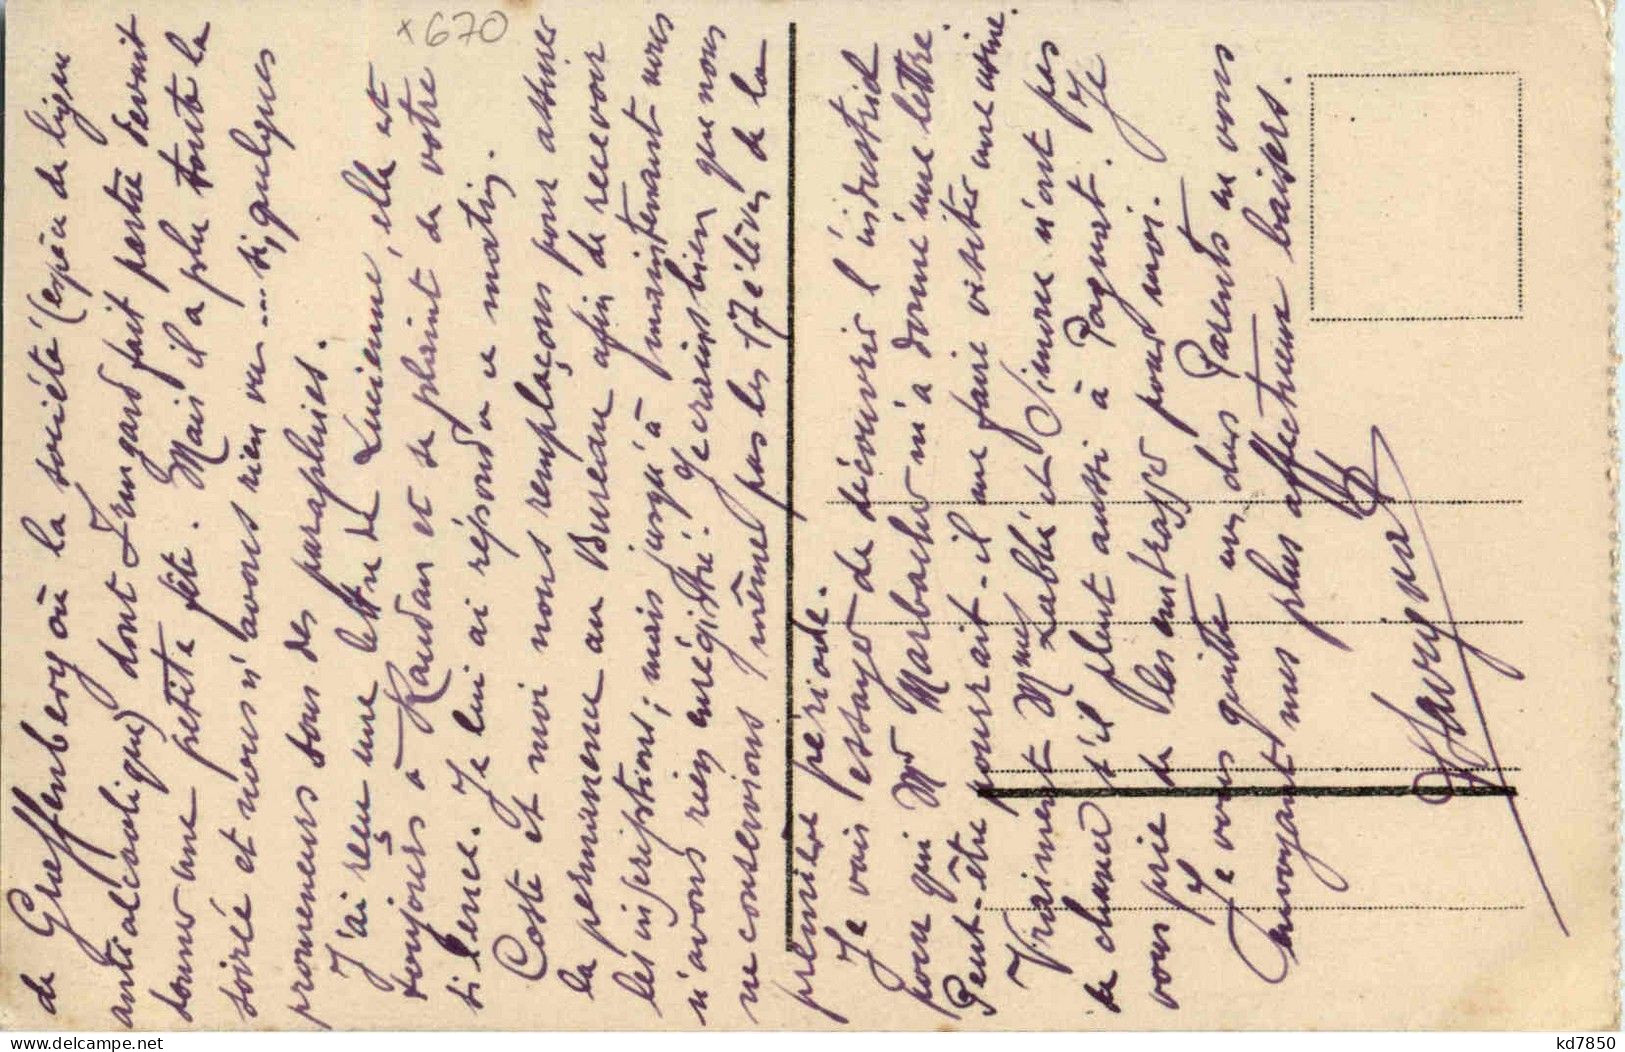 de Graffenberg où la société (espèce de ligue
antialcoolique) dont Irmgard fait partie devait
donner une petite fête. Mais il a plu toute la
soirée et nous n'avons rien vu.... si, quelques
promeneurs sous des parapluies.
J'ai reçu une lettre de Lucienne, elle est
toujours à Randan et se plaint de votre
silence. Je lui ai répondu ce matin.
Coste et moi nous remplaçons pour assurer
la permanence au Bureau afin de recevoir
les inscriptions; mais jusqu'à maintenant nous
n'avons rien enrégistré! Je crains bien que nous
ne conservions même pas les 17 élèves de la
première période.
Je vais essayer de découvrir l'industriel
pour qui Mr Marbach m'a donné une lettre.
Peut-être pourrait-il me faire visiter une usine.
Vraiment Mmes Labbé et Simone n'ont pas
de chance s'il pleut aussi à Pagnat. Je
vous prie de les embrasser pour moi.
Je vous quitte mes chers Parents en vous
envoyant mes plus affectueux baisers.
x670
kd7850